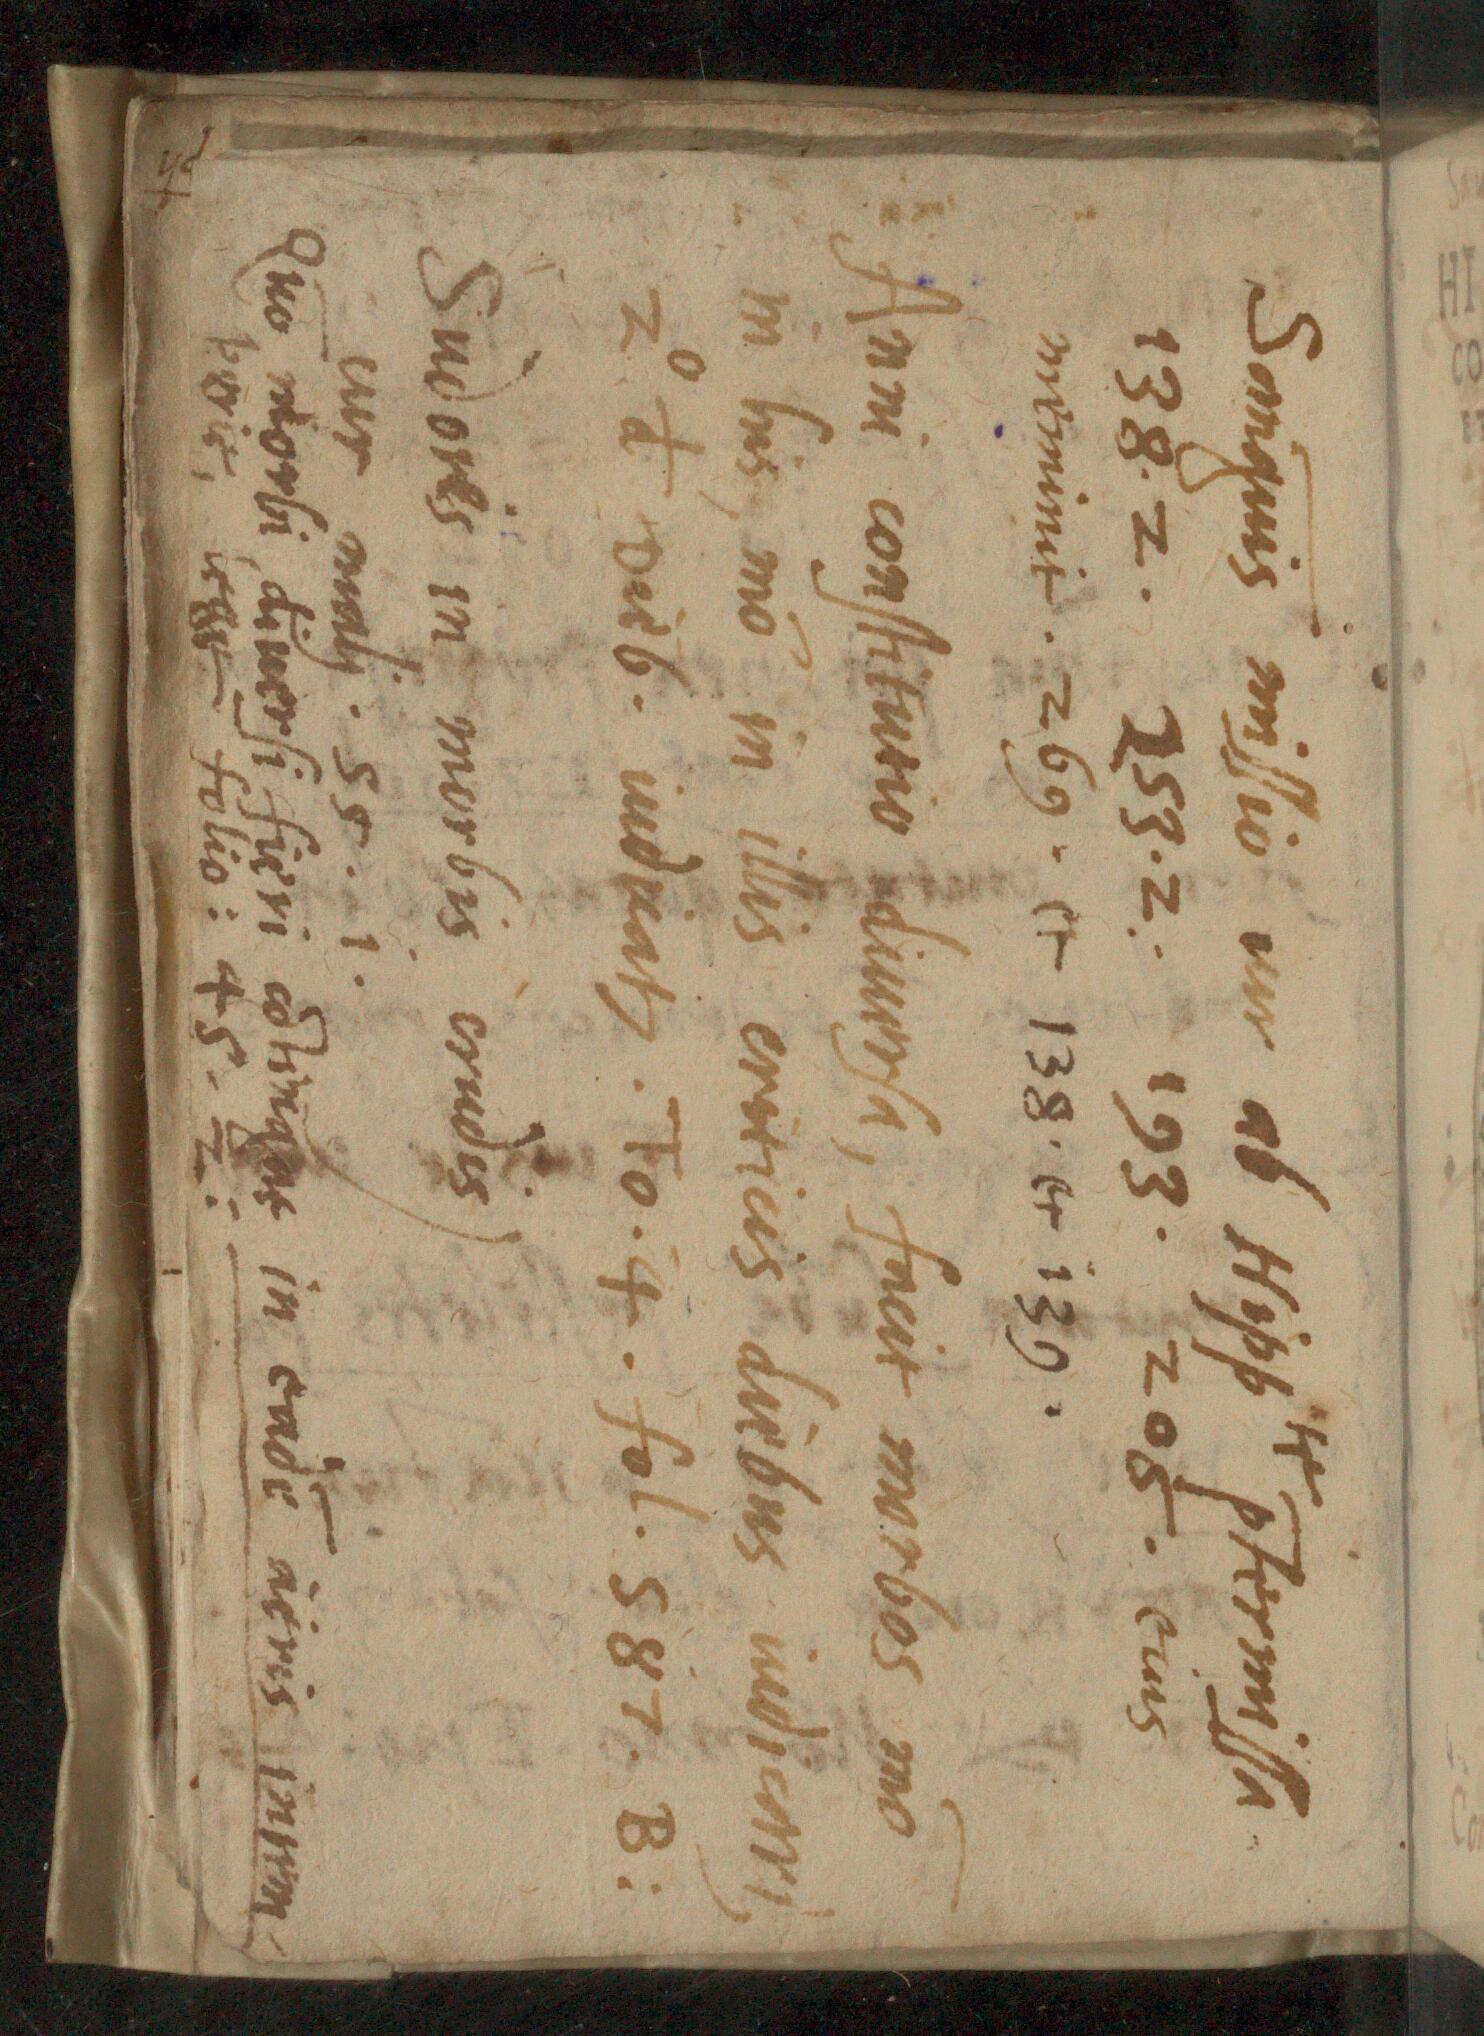 Sanguis missio cur ab Hipp pterissa
138.2. 253.2. 193. 205. eius
meminit. 269. et 138. et 139.
Anni constitutio diuersa, facit morbos mō
in his, mō in illis criticis diebus iudicari,
2° tt dieb. iudicatr. To. 4. fol. 587. B:
Sudores in morbis crudis
cur mali. 55. 1.
Quo morbi diuersi fieri in eadē aëris intem
perie, folio: 45. 2: